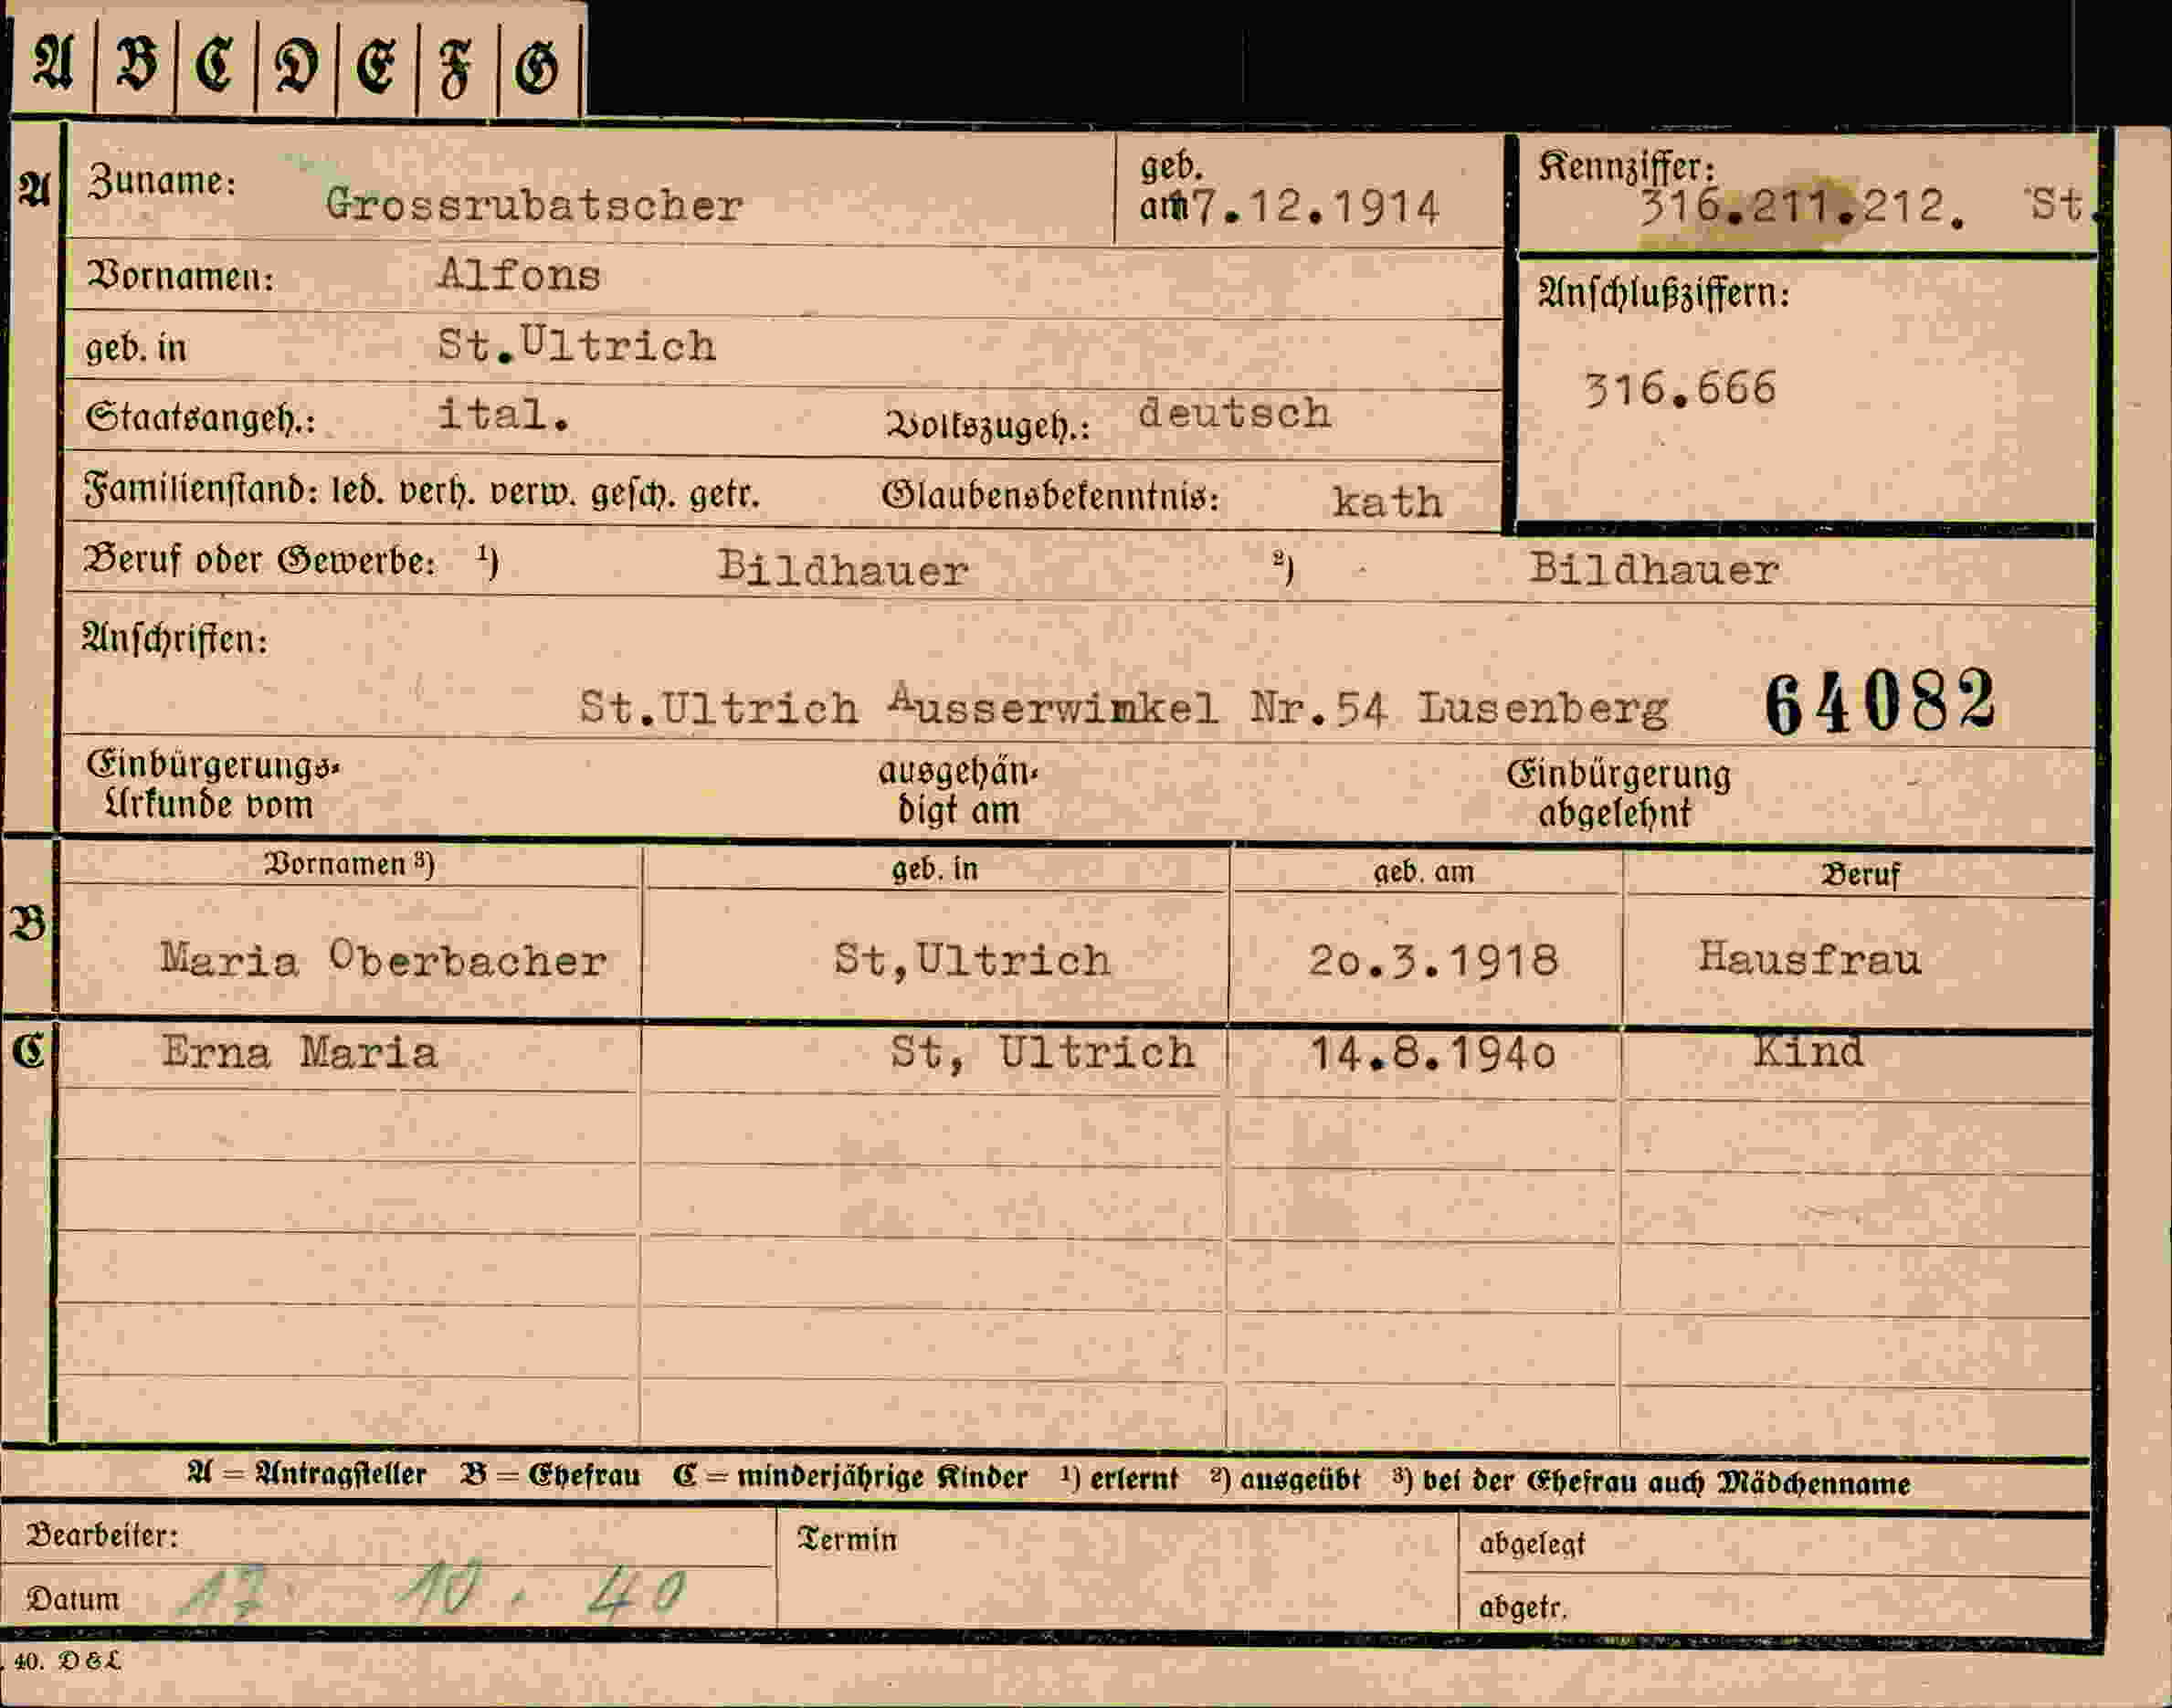 A B C D E F G
A Zuname: Grossrubatscher geb. am 17.12.1914 Kennziffer: 316.211.212. St.
Vornamen: Alfons Anschlußziffern:
geb. in St.Ultrich 316.666
Staatsangeh.: ital. Volkszugeh.: deutsch
Familienstand: led. verh. verw. gesch. getr. Glaubensbekenntnis: kath
Beruf oder Gewerbe: ¹) Bildhauer ²) Bildhauer
Anschriften:
St.Ultrich Ausserwinkel Nr.54 Lusenberg 64082
Einbürgerungs- ausgehän- Einbürgerung
Urkunde vom digt am abgelehnt
Vornamen ³) geb. in geb. am Beruf
B Maria Oberbacher St,Ultrich 2o.3.1918 Hausfrau
C Erna Maria St, Ultrich 14.8.194o Kind
A = Antragsteller B = Ehefrau C = minderjährige Kinder ¹) erlernt ²) ausgeübt ³) bei der Ehefrau auch Mädchenname
Bearbeiter: Termin abgelegt
Datum 17. 10. 40 abgetr.
40. D&L